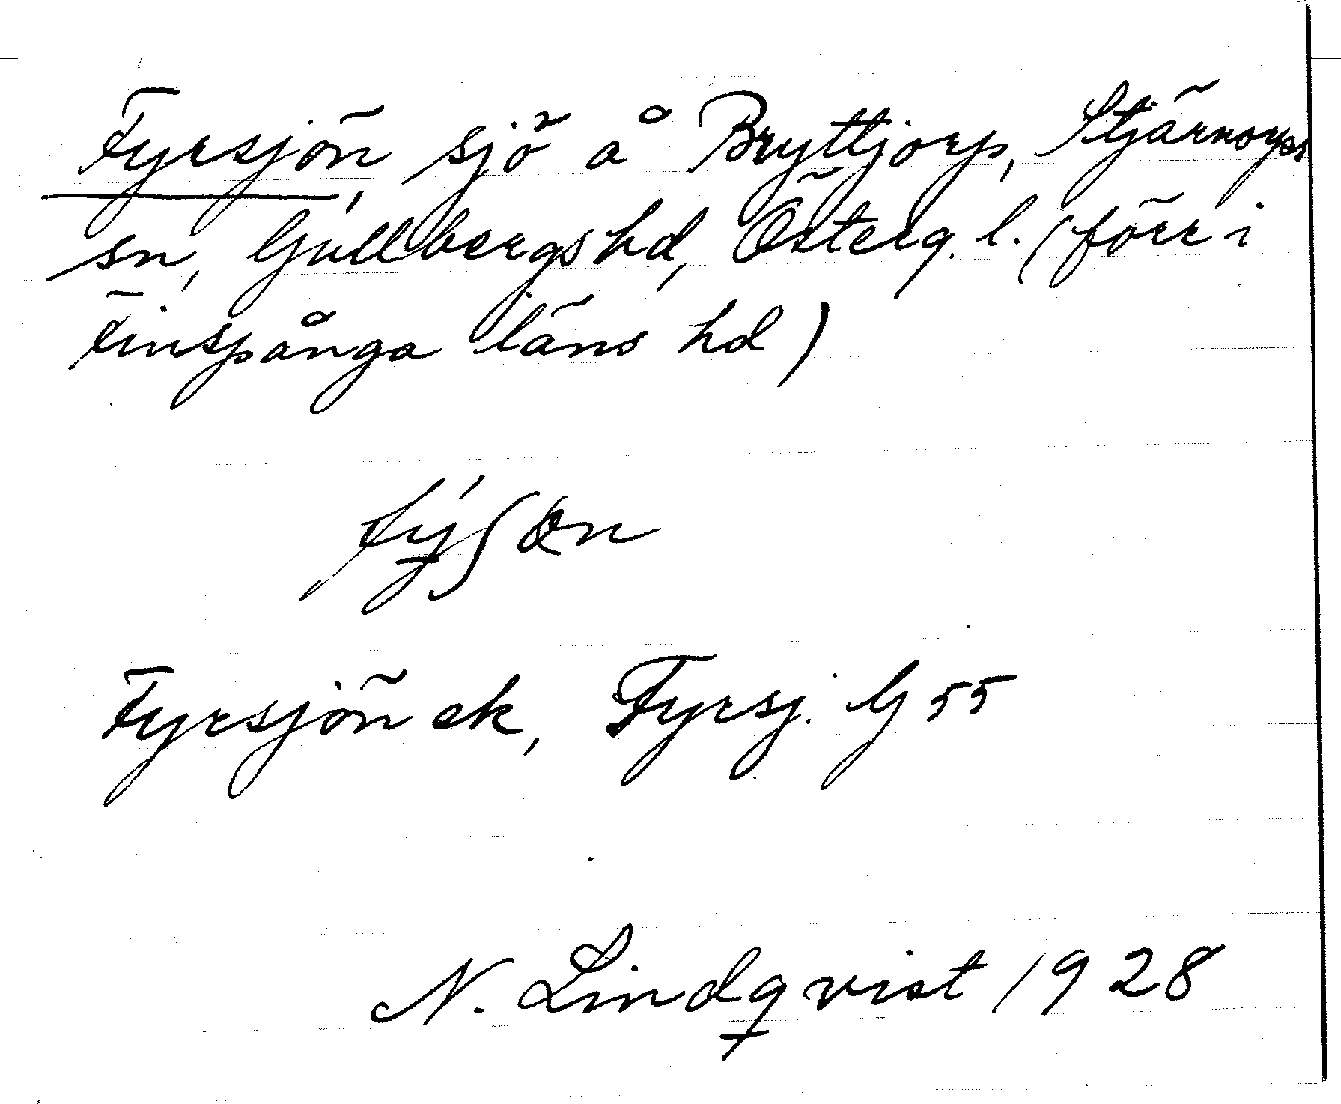 Fyrsjön, sjö å Bryttjorp, Stjärnorps
sn, Gullbergs hd, Österg. l. (förr i
Finspånga läns hd)
Fyrsjön ek, Fyrsj. G 55
N. Lindqvist 1928